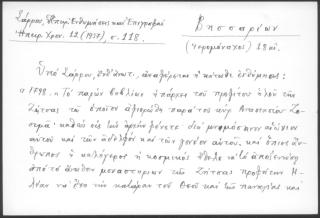 Σάρρου, Ἠπειρ. Ἐνθυμήσεις καὶ Ἐπιγραφαὶ
Ἠπειρ. Χρον. 12 (1937), σ. 118.
Βησσαρίων
(ἱερομόναχος) 18 αἰ.
Ὑπὸ Σάρρου, ἔνθ' ἀνωτ., ἀναφέρεται ἡ κάτωθι ἐνθύμησις:
« 1798. Τὸ παρὸν βιβλίον ὑπάρχει τοῦ προφίτου ἠλιοῦ τῆς
Ζήτσας τὸ ὁποῖον ἀφιερώθη παρὰ τοῦ κὺρ Ἀναστασίου
καθὼς εἰς τὴν ἀρχὴν φένετε διὰ μνημόσυνον αἰώνιον
αὐτοῦ καὶ τῶν ἀδελφῶν καὶ τῶν γονέων αὐτοῦ, καὶ ὅπιος ἄν-
θρωπος ἢ καλόγερος ἢ κοσμικὸς ἤθελε νὰ τὸ ἀποξενώσῃ
ἀπὸ τὸ ἄνωθεν μοναστήριον τῆς Ζήτσας προφήτου Ἠ-
λιοῦ νὰ ἔχῃ τὴν κατάραν τοῦ Θεοῦ καὶ τῆς παναγίας καὶ